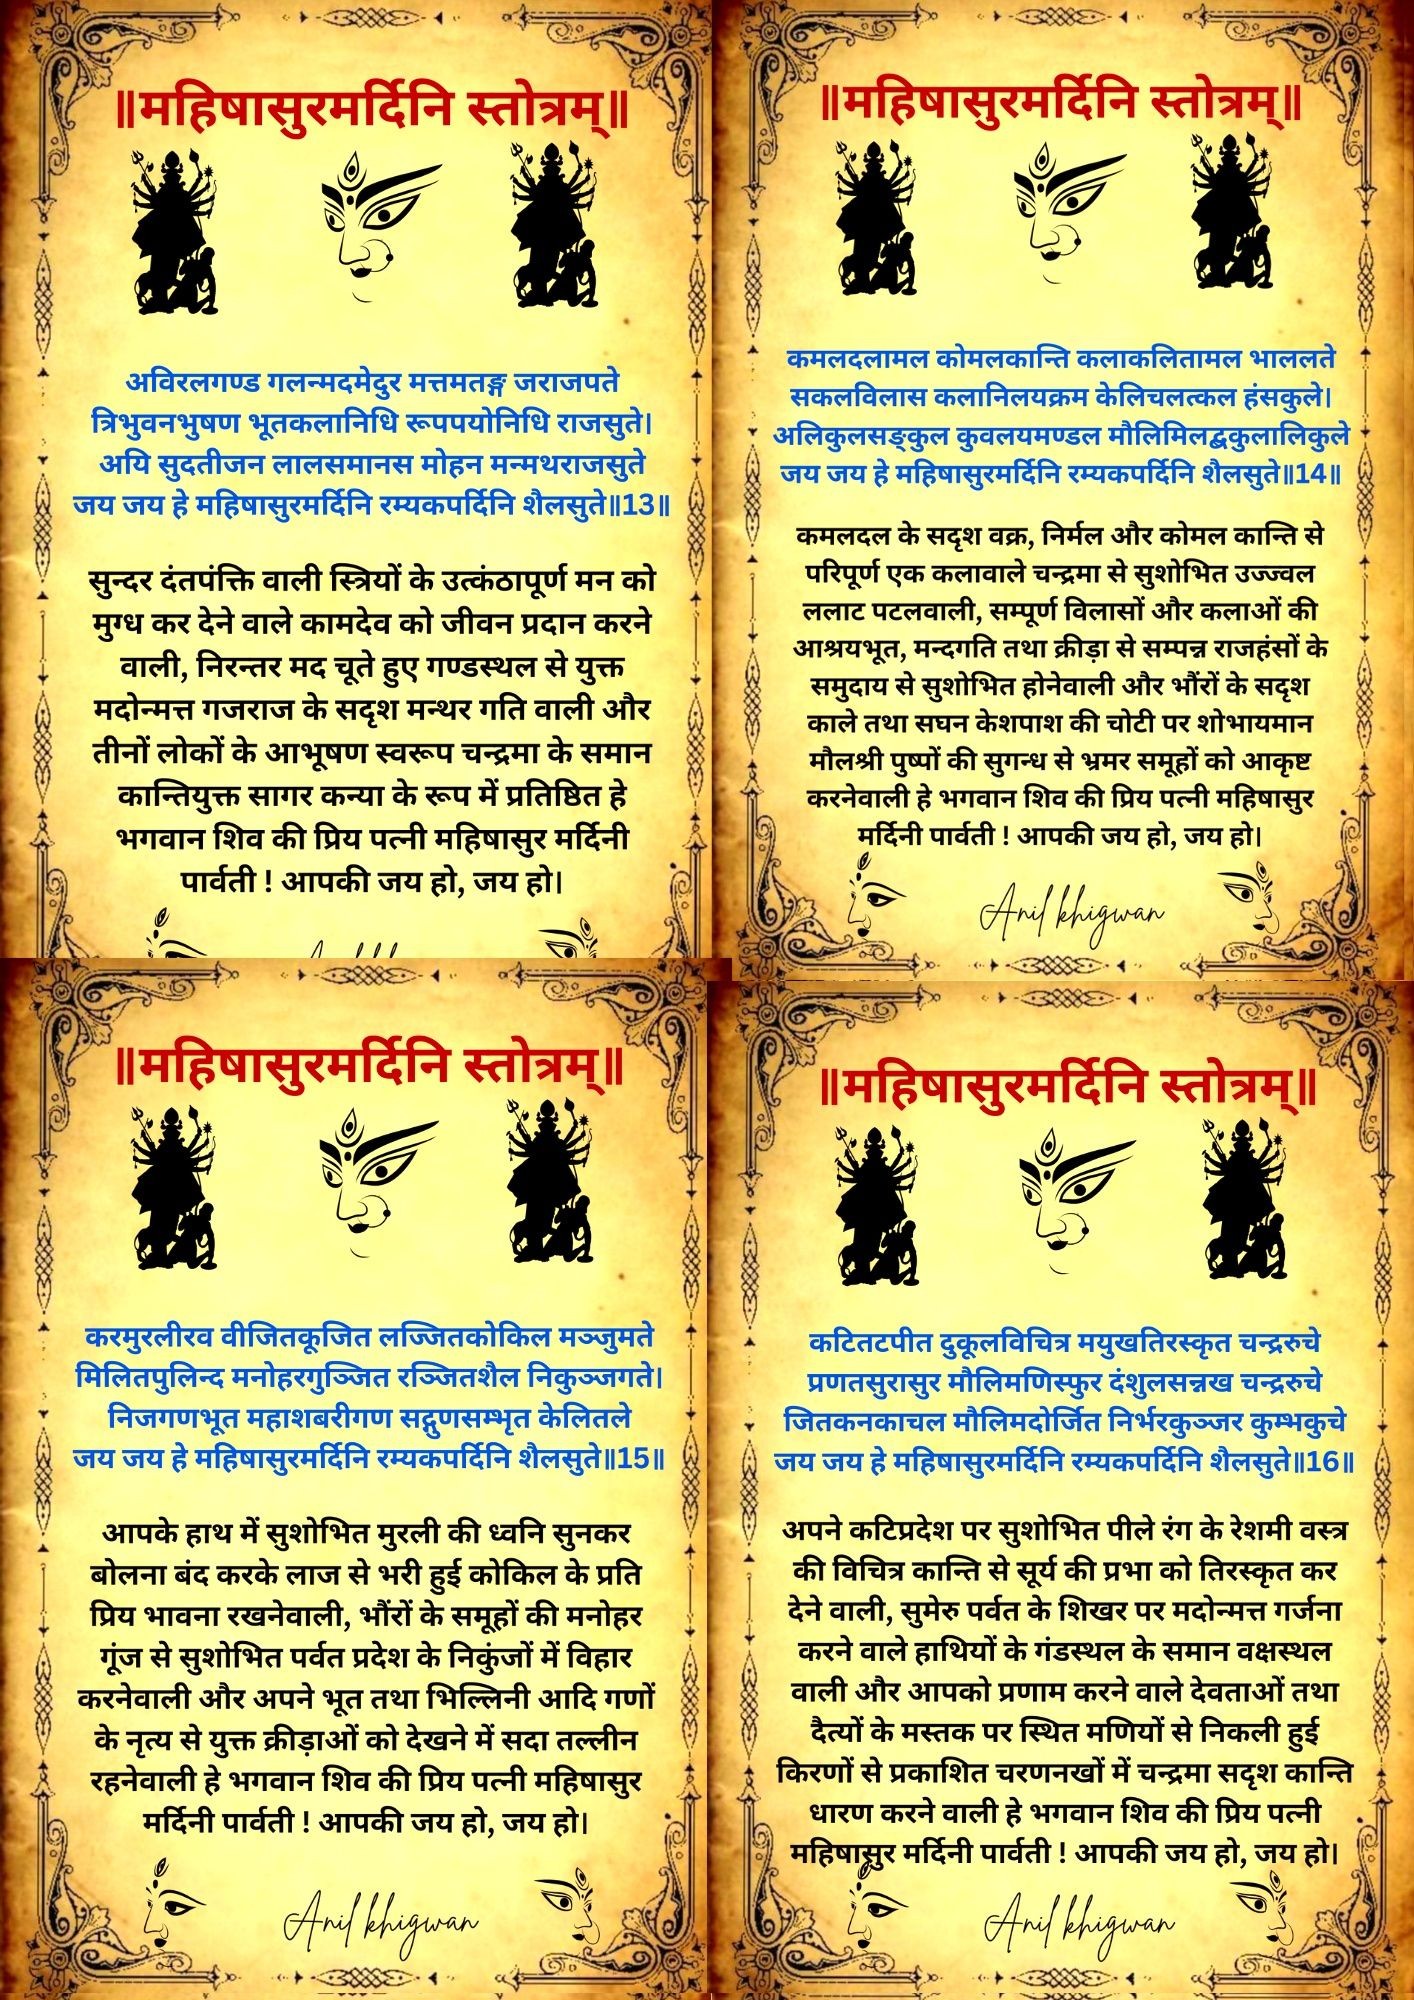 ॥महिषासुरमर्दिनि स्तोत्रम्॥
अविरलगण्ड गलन्मदमेदुर मत्तमतङ्ग जराजपते
त्रिभुवनभुषण भूतकलानिधि रूपपयोनिधि राजसुते।
अयि सुदतीजन लालसमानस मोहन मन्मथराजसुते
जय जय हे महिषासुरमर्दिनि रम्यकपर्दिनि शैलसुते॥13॥
सुन्दर दंतपंक्ति वाली स्त्रियों के उत्कंठापूर्ण मन को
मुग्ध कर देने वाले कामदेव को जीवन प्रदान करने
वाली, निरन्तर मद चूते हुए गण्डस्थल से युक्त
मदोन्मत्त गजराज के सदृश मन्थर गति वाली और
तीनों लोकों के आभूषण स्वरूप चन्द्रमा के समान
कान्तियुक्त सागर कन्या के रूप में प्रतिष्ठित हे
भगवान शिव की प्रिय पत्नी महिषासुर मर्दिनी
पार्वती ! आपकी जय हो, जय हो।
॥महिषासुरमर्दिनि स्तोत्रम्॥
कमलदलामल कोमलकान्ति कलाकलितामल भाललते
सकलविलास कलानिलयक्रम केलिचलत्कल हंसकुले।
अलिकुलसङ्कुल कुवलयमण्डल मौलिमिलद्बकुलालिकुले
जय जय हे महिषासुरमर्दिनि रम्यकपर्दिनि शैलसुते॥14॥
कमलदल के सदृश वक्र, निर्मल और कोमल कान्ति से
परिपूर्ण एक कलावाले चन्द्रमा से सुशोभित उज्ज्वल
ललाट पटलवाली, सम्पूर्ण विलासों और कलाओं की
आश्रयभूत, मन्दगति तथा क्रीड़ा से सम्पन्न राजहंसों के
समुदाय से सुशोभित होनेवाली और भौंरों के सदृश
काले तथा सघन केशपाश की चोटी पर शोभायमान
मौलश्री पुष्पों की सुगन्ध से भ्रमर समूहों को आकृष्ट
करनेवाली हे भगवान शिव की प्रिय पत्नी महिषासुर
मर्दिनी पार्वती ! आपकी जय हो, जय हो।
Anil khigwan
॥महिषासुरमर्दिनि स्तोत्रम्॥
करमुरलीरव वीजितकूजित लज्जितकोकिल मञ्जुमते
मिलितपुलिन्द मनोहरगुञ्जित रञ्जितशैल निकुञ्जगते।
निजगणभूत महाशबरीगण सद्गुणसम्भृत केलितले
जय जय हे महिषासुरमर्दिनि रम्यकपर्दिनि शैलसुते॥15॥
आपके हाथ में सुशोभित मुरली की ध्वनि सुनकर
बोलना बंद करके लाज से भरी हुई कोकिल के प्रति
प्रिय भावना रखनेवाली, भौंरों के समूहों की मनोहर
गूंज से सुशोभित पर्वत प्रदेश के निकुंजों में विहार
करनेवाली और अपने भूत तथा भिल्लिनी आदि गणों
के नृत्य से युक्त क्रीड़ाओं को देखने में सदा तल्लीन
रहनेवाली हे भगवान शिव की प्रिय पत्नी महिषासुर
मर्दिनी पार्वती ! आपकी जय हो, जय हो।
Anil khigwan
॥महिषासुरमर्दिनि स्तोत्रम्॥
कटितटपीत दुकूलविचित्र मयुखतिरस्कृत चन्द्ररुचे
प्रणतसुरासुर मौलिमणिस्फुर दंशुलसन्नख चन्द्ररुचे
जितकनकाचल मौलिमदोर्जित निर्भरकुञ्जर कुम्भकुचे
जय जय हे महिषासुरमर्दिनि रम्यकपर्दिनि शैलसुते॥16॥
अपने कटिप्रदेश पर सुशोभित पीले रंग के रेशमी वस्त्र
की विचित्र कान्ति से सूर्य की प्रभा को तिरस्कृत कर
देने वाली, सुमेरु पर्वत के शिखर पर मदोन्मत्त गर्जना
करने वाले हाथियों के गंडस्थल के समान वक्षस्थल
वाली और आपको प्रणाम करने वाले देवताओं तथा
दैत्यों के मस्तक पर स्थित मणियों से निकली हुई
किरणों से प्रकाशित चरणनखों में चन्द्रमा सदृश कान्ति
धारण करने वाली हे भगवान शिव की प्रिय पत्नी
महिषासुर मर्दिनी पार्वती ! आपकी जय हो, जय हो।
Anil khigwan